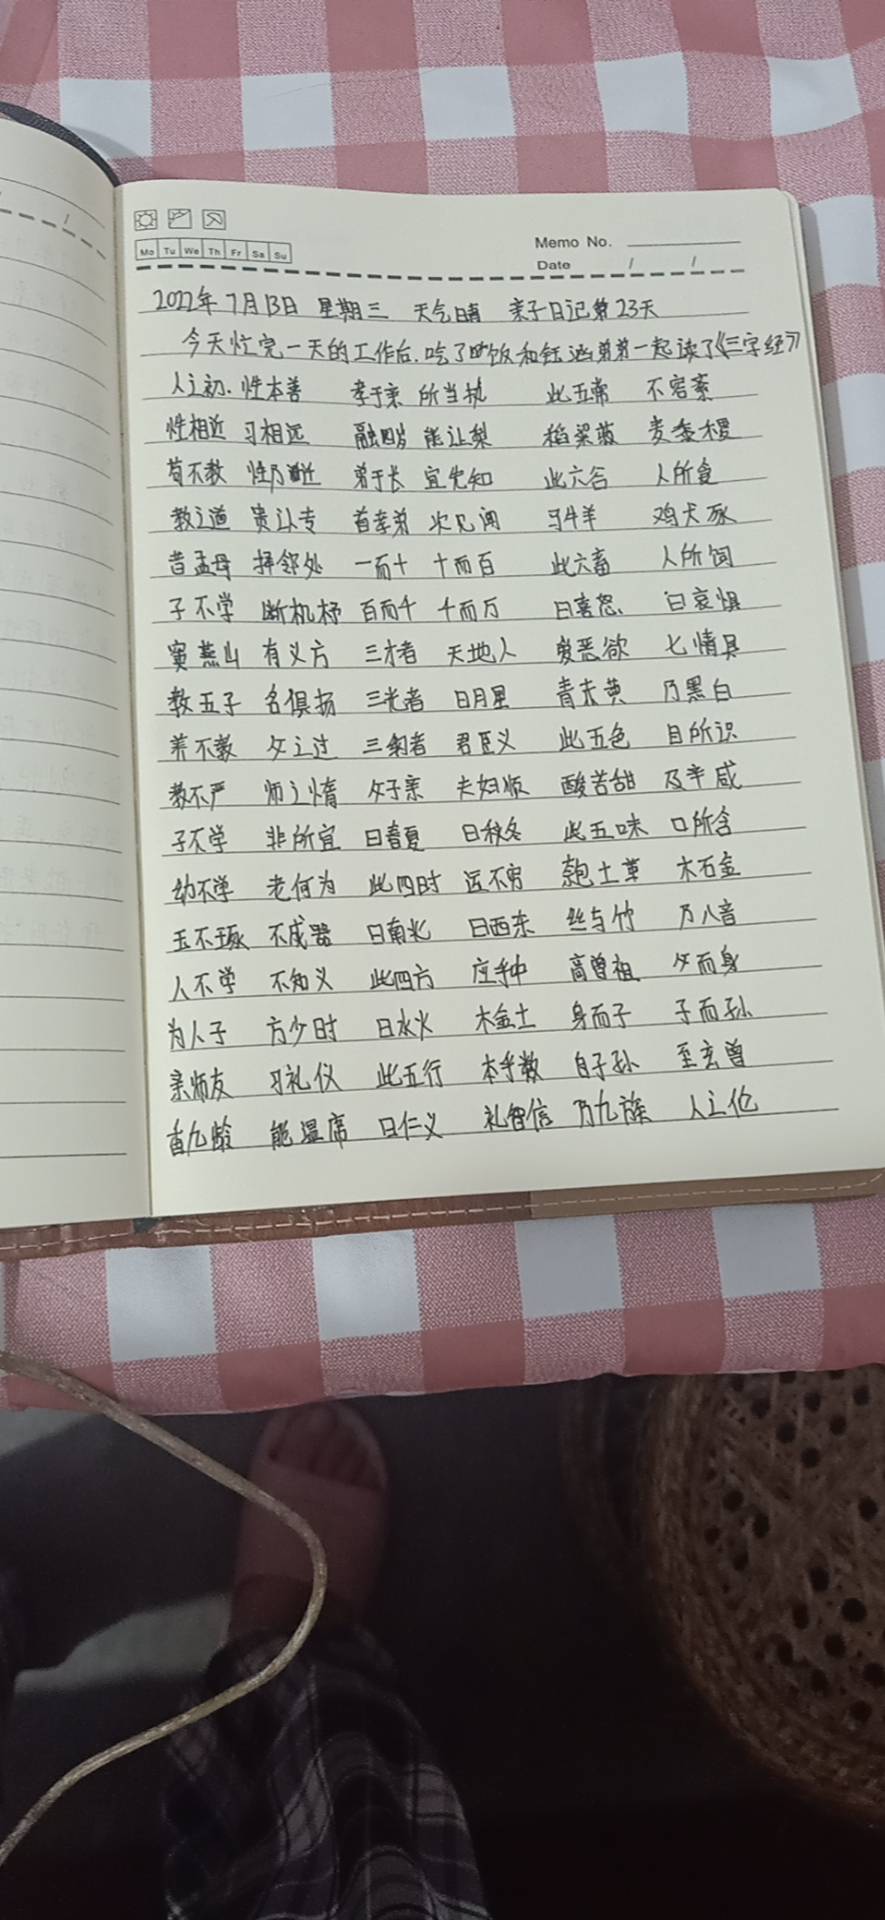 Memo No.
Mo Tu We Th Fr Sa Su
Date / /
2022年7月13日 星期三 天气晴 亲子日记第23天
今天忙完一天的工作后.吃了晚饭和钰涵弟弟一起读了《三字经》
人之初.性本善 孝于亲 所当执 此五常 不容紊
性相近 习相远 融四岁 能让梨 稻粱菽 麦黍稷
苟不教 性乃迁 弟于长 宜先知 此六谷 人所食
教之道 贵以专 首孝弟 次见闻 马牛羊 鸡犬豕
昔孟母 择邻处 一而十 十而百 此六畜 人所饲
子不学 断机杼 百而千 千而万 曰喜怒 曰哀惧
窦燕山 有义方 三才者 天地人 爱恶欲 七情具
教五子 名俱扬 三光者 日月星 青赤黄 乃黑白
养不教 父之过 三纲者 君臣义 此五色 目所识
教不严 师之惰 父子亲 夫妇顺 酸苦甜 及辛咸
子不学 非所宜 曰春夏 曰秋冬 此五味 口所含
幼不学 老何为 此四时 运不穷 匏土革 木石金
玉不琢 不成器 曰南北 曰西东 丝与竹 乃八音
人不学 不知义 此四方 应乎中 高曾祖 父而身
为人子 方少时 曰水火 木金土 身而子 子而孙
亲师友 习礼仪 此五行 本乎数 自子孙 至玄曾
香九龄 能温席 曰仁义 礼智信 乃九族 人之伦